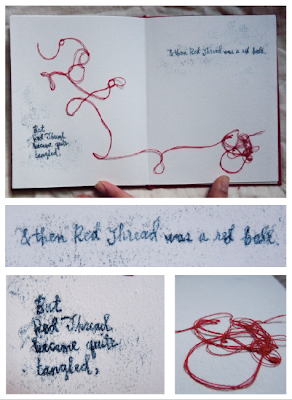 But
Red Thread
became quite
tangled,
& then Red Thread was a red ball.
& then Red Thread was a red ball.
But
Red Thread
became quite
tangled,